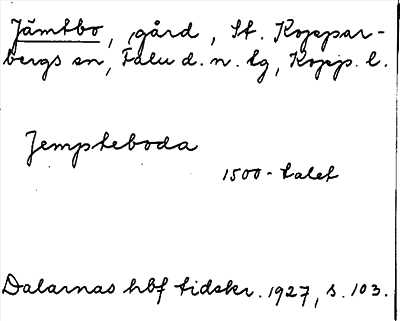 Jämtbo, gård, St. Koppar-
bergs sn, Falu d. n. lg, Kopp. l.
Jempteboda
1500-talet
Dalarnas hbf tidskr. 1927, s. 103.